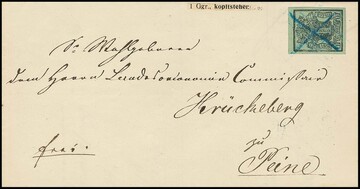 1 Ggr., kopfsteher.
Sr Wohlgeboren
dem Herrn Landesoeconomie Commissair
Krückeberg
zu
Peine.
frei.